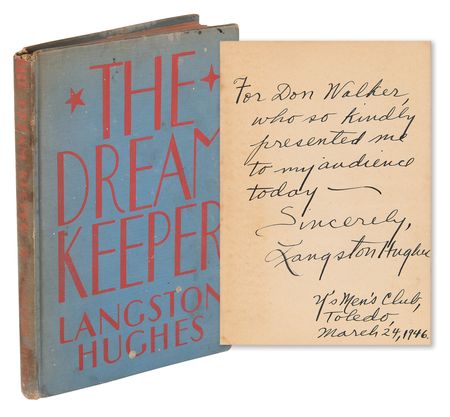 THE
DREAM
KEEPER
LANGSTON
HUGHES
For Don Walker,
who so kindly
presented me
to my audience
today —
Sincerely,
Langston Hughes
Y's Men's Club,
Toledo,
March 24, 1946.